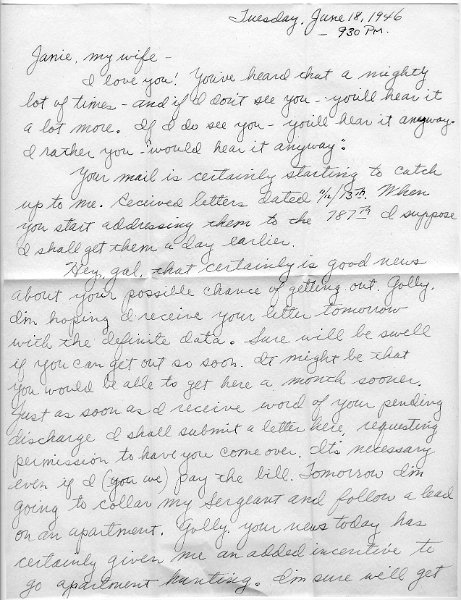 Tuesday, June 18, 1946
- 930 PM.
Janie, my wife -
I love you! You've heard that a mighty
lot of times - and if I don't see you - you'll hear it
a lot more. If I do see you - you'll hear it anyway.
I rather you - "would hear it anyway".
Your mail is certainly starting to catch
up to me. Received letters dated 11/12/13th. When
you start addressing them to the 787th I suppose
I shall get them a day earlier.
Hey, gal, that certainly is good news
about your possible chance of getting out. Golly,
I'm hoping I receive your letter tomorrow
with the definite data. Sure will be swell
if you can get out so soon. It might be that
you would be able to get here a month sooner.
Just as soon as I receive word of your pending
discharge I shall submit a letter here, requesting
permission to have you come over. It's necessary
even if I (you we) pay the bill. Tomorrow I'm
going to collar my Sergeant and follow a lead
on an apartment. Golly, your news today has
certainly given me an added incentive to
go apartment hunting. I'm sure will get